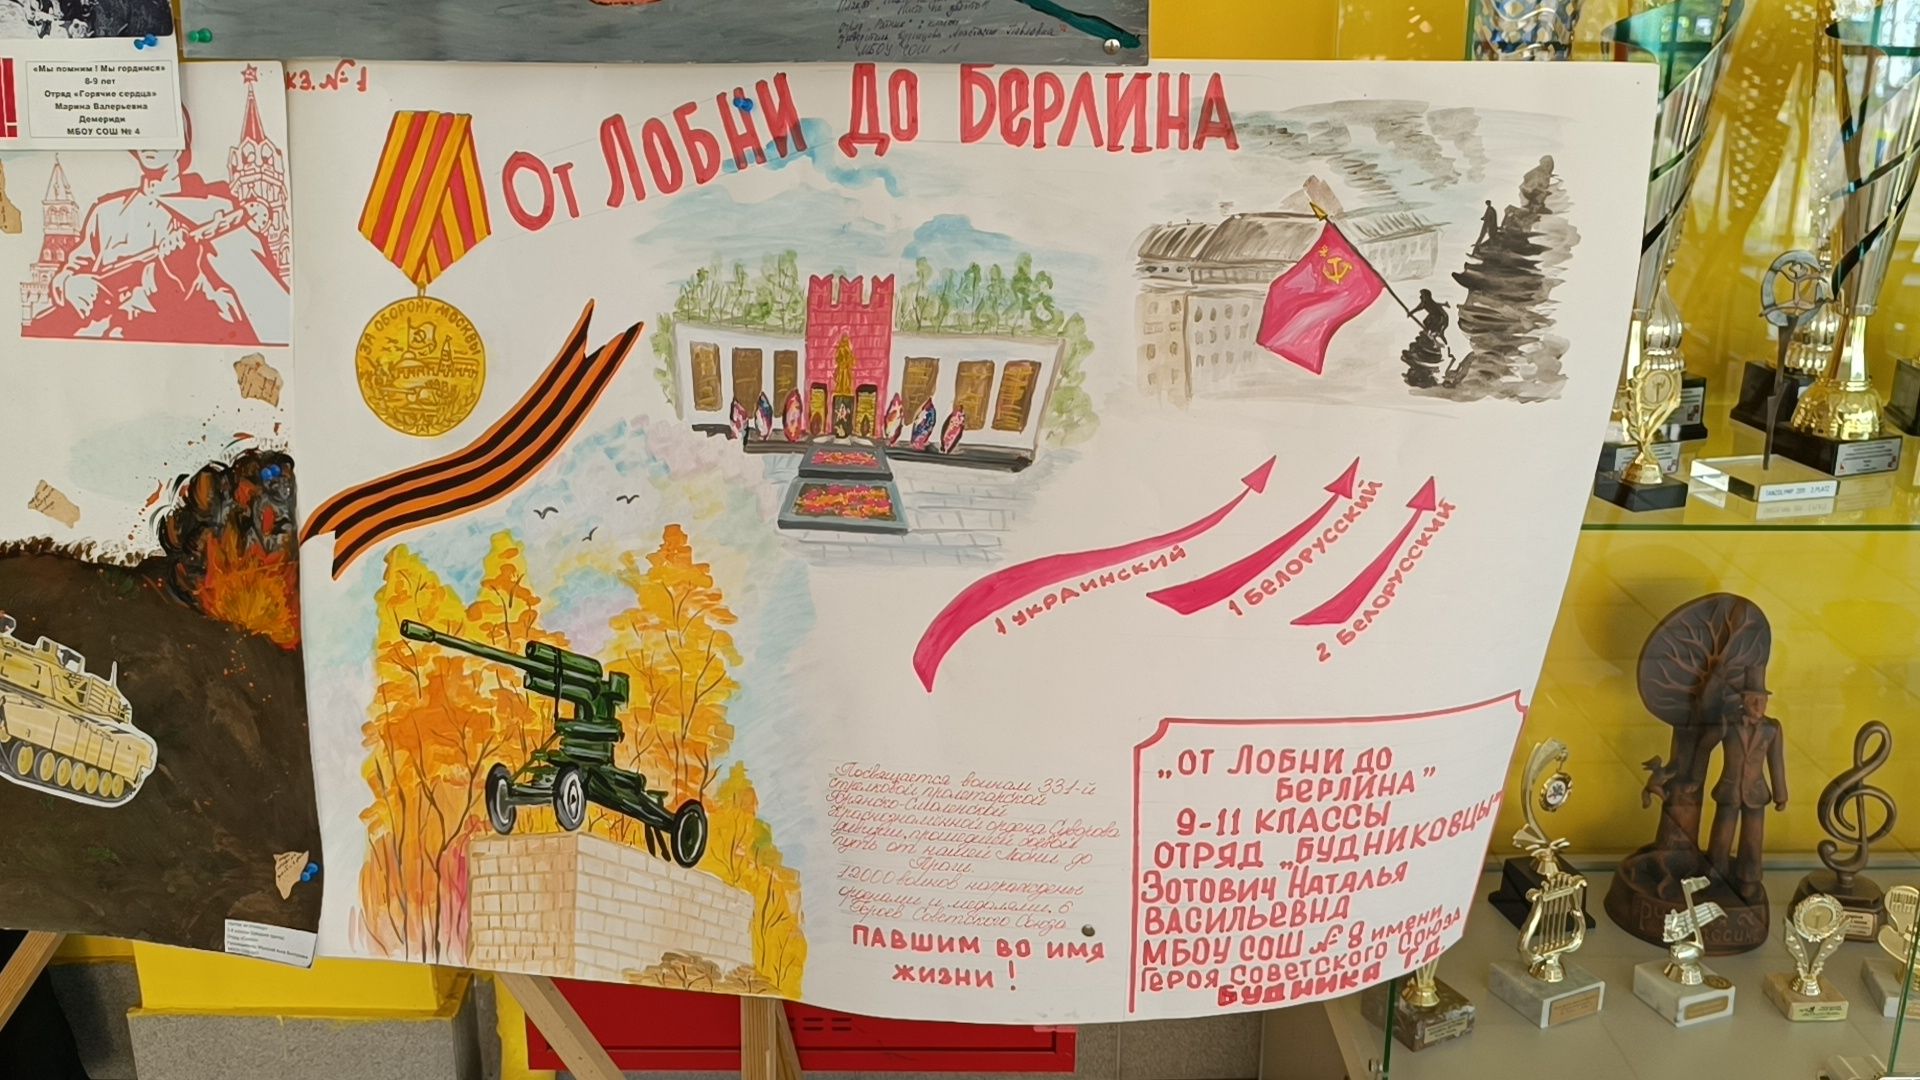 МБОУ СОШ №1
«Мы помним! Мы гордимся»
8-9 лет
Отряд «Горячие сердца»
Марина Валерьевна
Демериди
МБОУ СОШ № 4
КЗ. № 1
От Лобни до Берлина
ЗА ОБОРОНУ МОСКВЫ
1 УКРАИНСКИЙ
1 БЕЛОРУССКИЙ
2 БЕЛОРУССКИЙ
Посвящается воинам 331-й
стрелковой пролетарской
Брянско-Смоленской
Краснознамённой ордена Суворова
дивизии, прошедшей боевой
путь от нашей Лобни до
Праги.
12000 воинов награждены
орденами и медалями. 6
Героев Советского Союза
ПАВШИМ ВО ИМЯ
ЖИЗНИ!
„ОТ ЛОБНИ ДО
БЕРЛИНА”
9-11 КЛАССЫ
ОТРЯД „БУДНИКОВЦЫ"
ЗОТОВИЧ НАТАЛЬЯ
ВАСИЛЬЕВНА
МБОУ СОШ № 8 имени
Героя Советского Союза
БУДНИКА Г.Д.
TANZOLYMP 2011 2.PLATZ